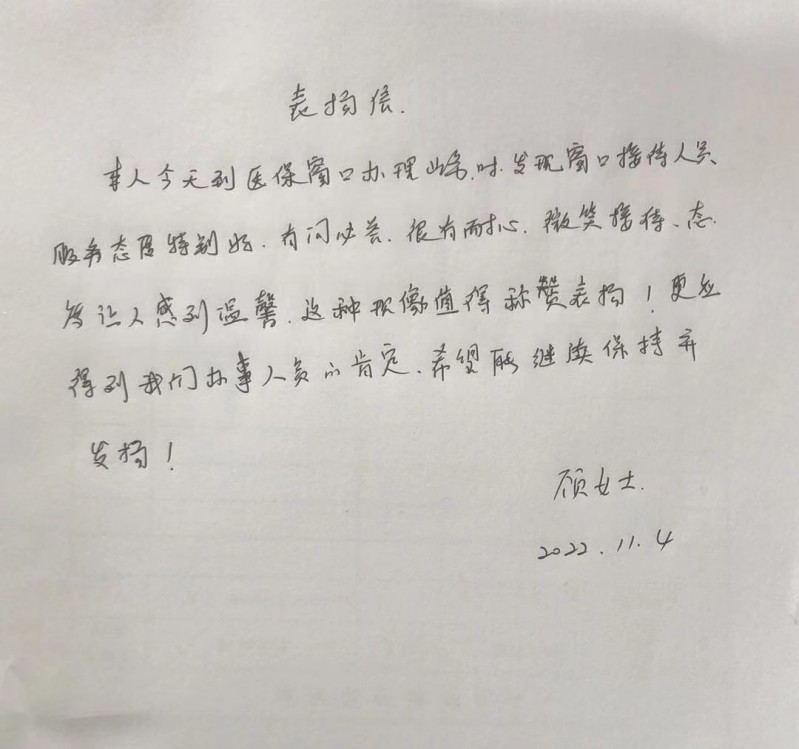 表扬信.
本人今天到医保窗口办理业务时.发现窗口接待人员、
服务态度特别好.有问必答.很有耐心.微笑接待、态.
度让人感到温馨.这种现像值得称赞表扬！更应
得到我们办事人员的肯定、希望能继续保持并
发扬！
顾女士.
2022.11.4